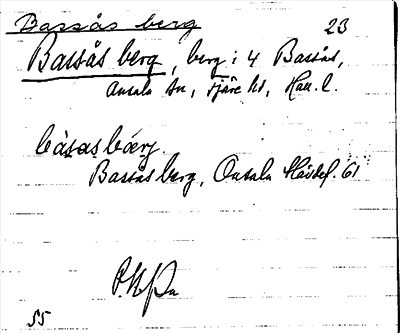 Bassås berg 23
Bassås berg, berg i 4 Bassås,
Onsala sn, Fjäre hd, Hall. l.
bàsas bærg.
Bassås berg, Onsala Hävdef. 61
55